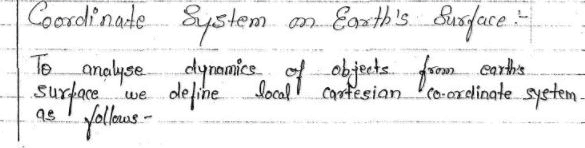 Coordinate System on Earth's Surface :-
To analyse dynamics of objects from earth's
surface we define local cartesian co-ordinate system
as follows -